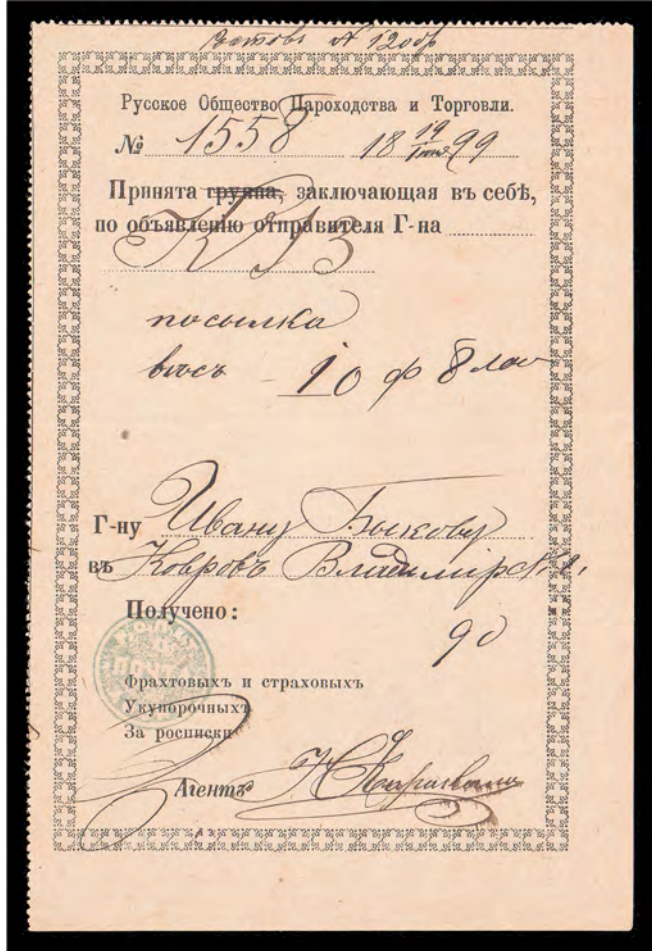 Русское Общество Пароходства и Торговли.
№ 1558 18 19/Іюня 99
Принята группа, заключающая въ себѣ,
по объявленію отправителя Г-на
посылка
вѣсъ – 10 ф 8 ло
Г-ну Ивану Быкову
въ Ковровъ Владимірск.
Получено:
90
Фрахтовыхъ и страховыхъ
Укупорочныхъ
За росписки
Агентъ